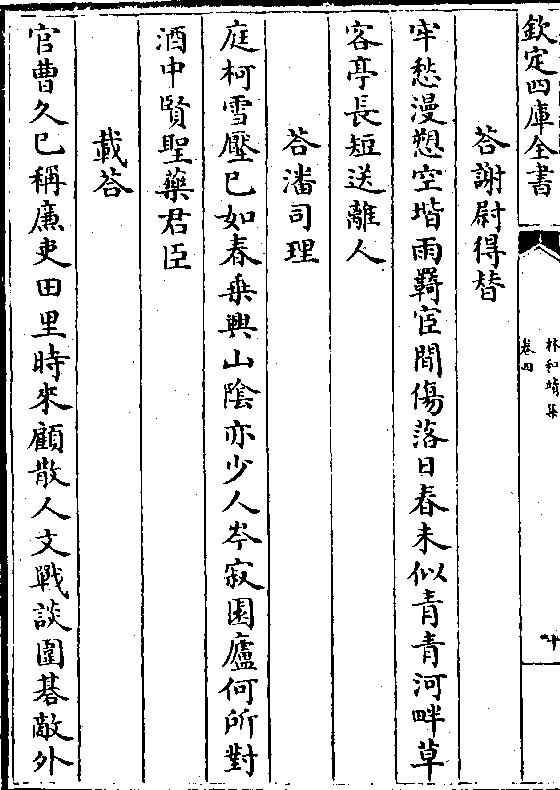 欽定四庫全書
林和靖集
卷四
十
荅謝尉得替
牢愁漫愬空堦雨羇宦間傷落日春未似青青河畔草
客亭長短送離人
荅潘司理
庭柯雪壓已如春乗興山隂亦少人岑寂園廬何所對
酒中賢聖藥君臣
載荅
官曹久已稱廉吏田里時來顧散人文戰談圍碁敵外